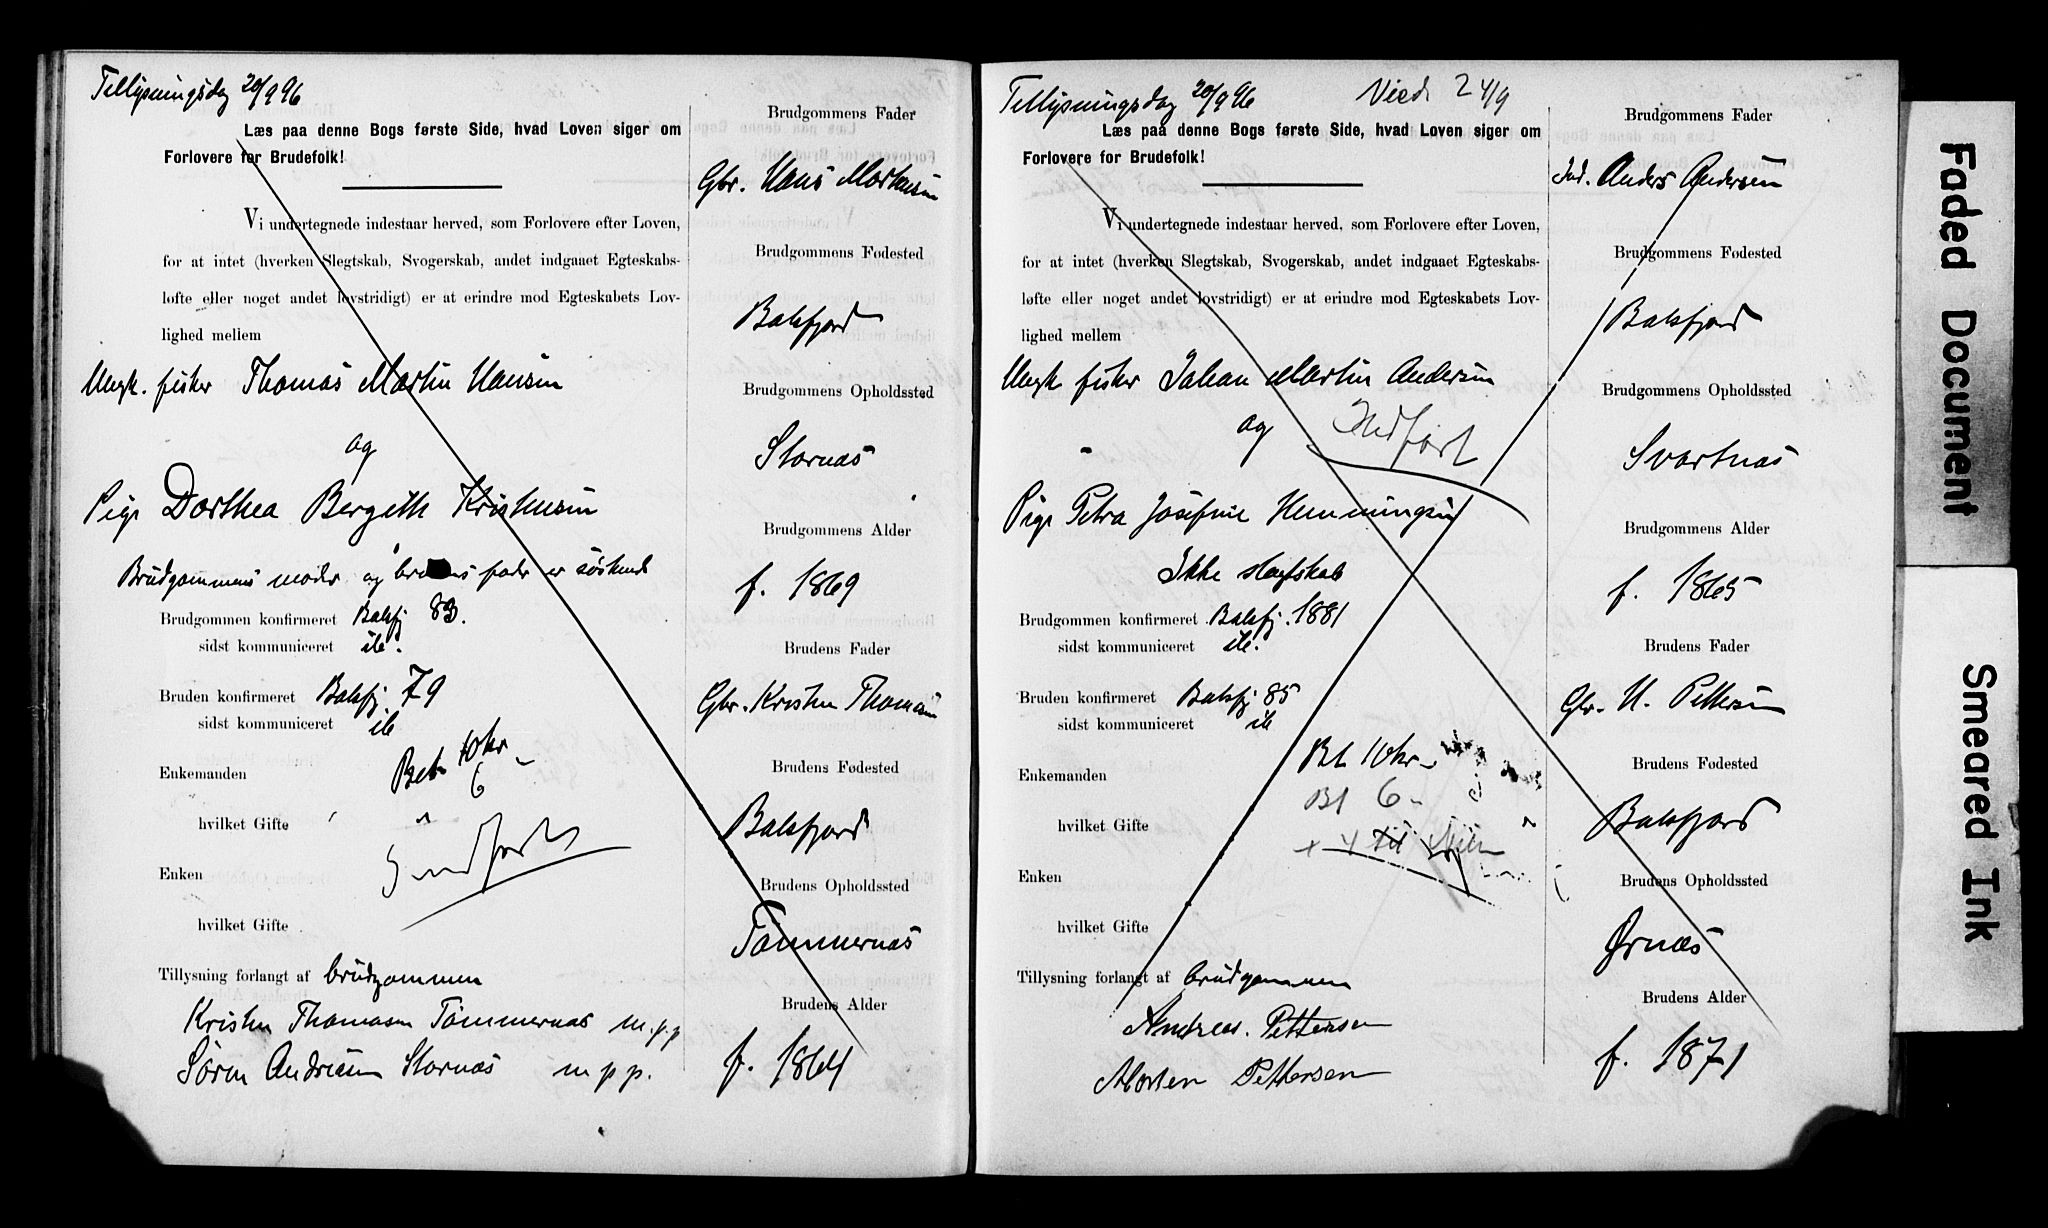 Tillysningsdag 20/9 96
Læs paa denne Bogs første Side, hvad Loven siger om
Forlovere for Brudefolk!
Vi undertegnede indestaar herved, som Forlovere efter Loven,
for at intet (hverken Slegtskab, Svogerskab, andet indgaaet Egteskabs-
løfte eller noget andet lovstridigt) er at erindre mod Egteskabets Lov-
lighed mellem
Ungk. fisker Thomas Martin Hansen
og
Pige Dorthea Bergith Kristensen
Brudgommens moder og brudens fader er søskende
Brudgommen konfirmeret Balsfj. 83.
sidst kommuniceret ib.
Bruden konfirmeret Balsfj. 79
sidst kommuniceret ib
Enkemanden
Bet. 10 kr
" 6 -
hvilket Gifte
Indført
Enken
hvilket Gifte
Tillysning forlangt af brudgommen
Kristen Thomasen Tømmernæs m.p.p
Søren Andreasen Stornæs m.p.p.
Brudgommens Fader
Gbr. Hans Mortensen
Brudgommens Fødested
Balsfjord
Brudgommens Opholdssted
Stornæs
Brudgommens Alder
f. 1869
Brudens Fader
Gbr. Kristen Thomasen
Brudens Fødested
Balsfjord
Brudens Opholdssted
Tømmernæs
Brudens Alder
f. 1864
Tillysningsdag 20/9 96 Viede 24/9
Læs paa denne Bogs første Side, hvad Loven siger om
Forlovere for Brudefolk!
Vi undertegnede indestaar herved, som Forlovere efter Loven,
for at intet (hverken Slegtskab, Svogerskab, andet indgaaet Egteskabs-
løfte eller noget andet lovstridigt) er at erindre mod Egteskabets Lov-
lighed mellem
Ungk fisker Johan Martin Andersen
og Indført
Pige Petra Josefine Hemmingsen
Ikke slegtskab
Brudgommen konfirmeret Balsfj. 1881
sidst kommuniceret ib.
Bruden konfirmeret Balsfj 85
sidst kommuniceret ib
Bt 10 kr -
Enkemanden
Bt 6 -
hvilket Gifte
+ 4 til
Enken
hvilket Gifte
Tillysning forlangt af brudgommen
Andreas. Pettersen
Morten Pettersen
Brudgommens Fader
Ind. Anders Andersen
Brudgommens Fødested
Balsfjord
Brudgommens Opholdssted
Svartnæs
Brudgommens Alder
f. 1865
Brudens Fader
Gbr. H. Pettersen
Brudens Fødested
Balsfjord
Brudens Opholdssted
Ørnæs
Brudens Alder
f. 1871
Faded Document
Smeared Ink